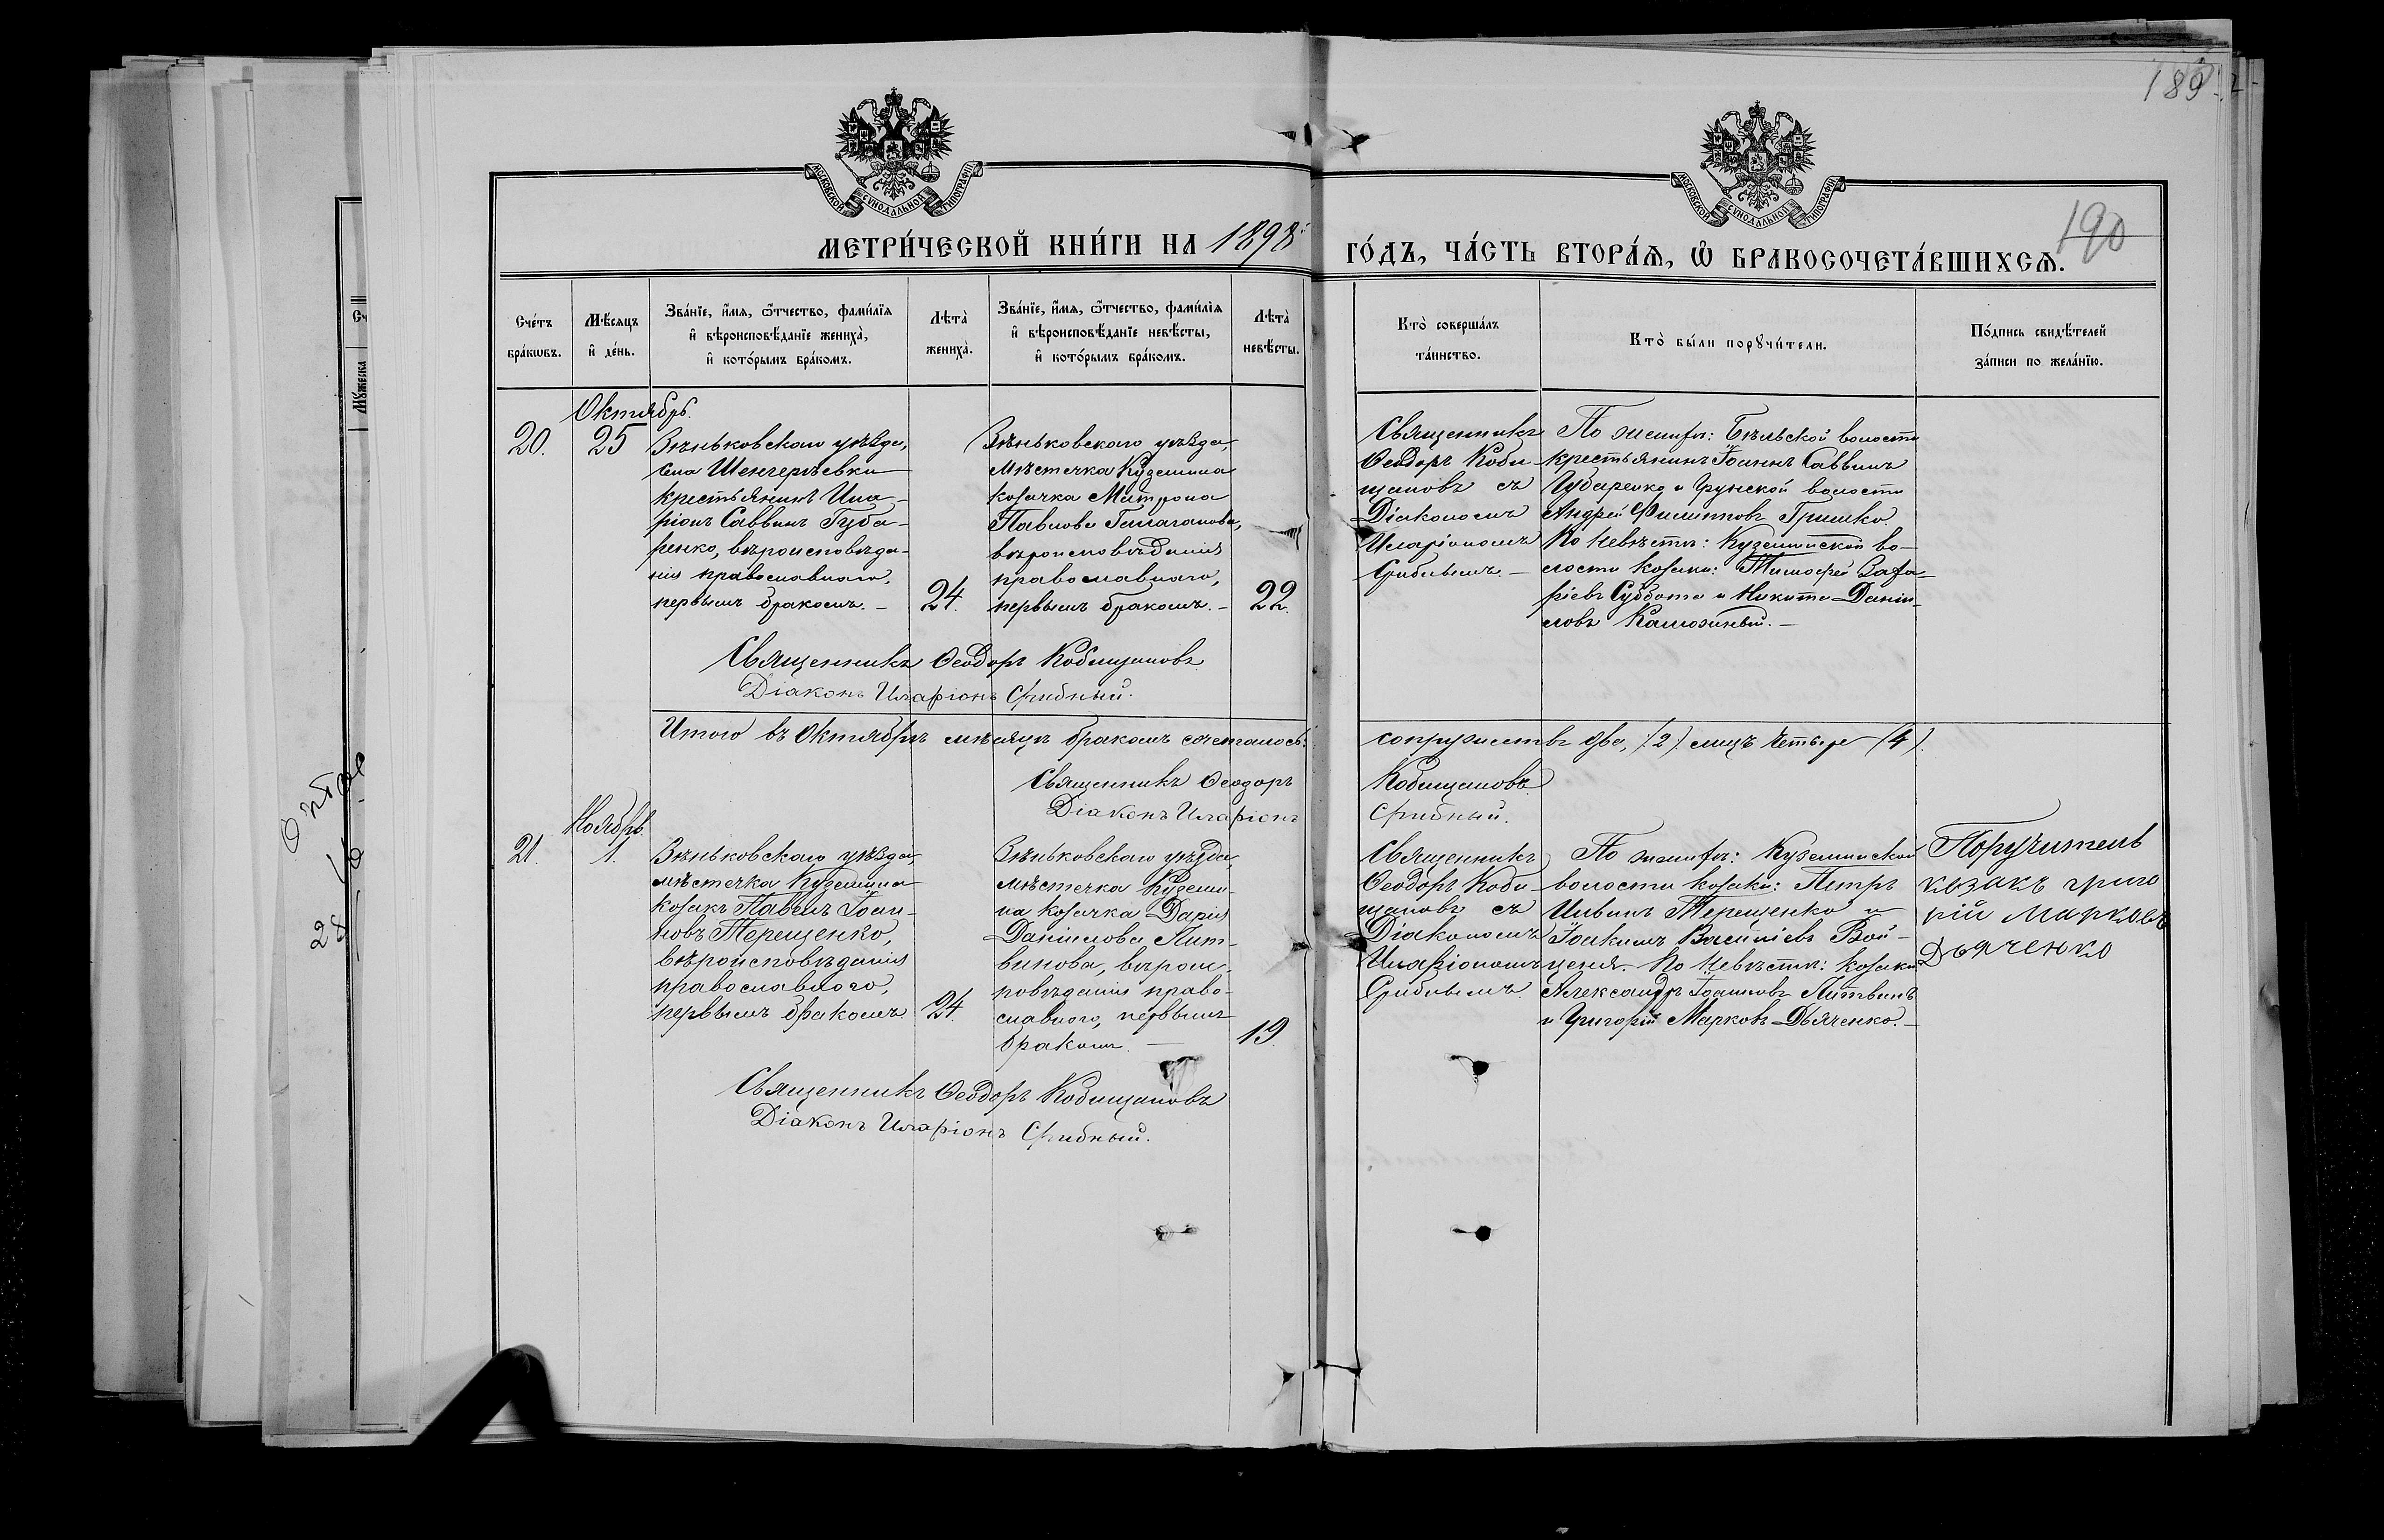 189
190
МОСКОВСКОЙ СѴНОДАЛЬНОЙ ТИПОГРАФІИ
МОСКОВСКОЙ СѴНОДАЛЬНОЙ ТИПОГРАФІИ
МЕТРИ́ЧЕСКОЙ КНИ́ГИ НА 1898 ГО́ДЪ, ЧА́СТЬ ВТОРА́Ѧ, Ѡ҆ БРАКОСОЧЕТА́ВШИХСѦ.
Сче́тъ бра́кѡвъ.
Мѣ́сяцъ и҆ де́нь.
Зва́нїе, и҆́мя, ѻ҆́тчество, фами́лїя
и҆ вѣроисповѣ́данїе жениха̀,
и҆ кото́рымъ бра́комъ.
Лѣта̀ жениха̀.
Зва́нїе, и҆́мя, ѻ҆́тчество, фами́лїя
и҆ вѣроисповѣ́данїе невѣ́сты,
и҆ кото́рымъ бра́комъ.
Лѣта̀ невѣ́сты.
Кто̀ соверша́лъ
та́инство.
Кто̀ бы́ли порꙋчи́тели.
По́дпись свидѣ́телей
за́писи по жела́нїю.
Октябрь.
20.
25
Зѣньковскаго уѣзда,
села Шенгерѣевки
крестьянинъ Ила-
ріонъ Саввинъ Губа-
ренко, вѣроисповѣда-
нія православнаго,
первымъ бракомъ. –
24.
Зѣньковскаго уѣзда,
мѣстечка Куземина
козачка Матрона
Павлова Галаганова,
вѣроисповѣданія
православнаго,
первымъ бракомъ. –
22.
Священникъ
Ѳеодоръ Коби-
щановъ съ
Діакономъ
Иларіономъ
Срибнымъ. –
По женихѣ: Бѣльской волости
крестьянинъ Іоаннъ Саввинъ
Губаренко и Грунской волости
Андрей Филипповъ Гришко.
По невѣстѣ: Куземинской во-
лости козаки: Тимофей Заха-
ріевъ Суббота и Никита Даніи-
ловъ Калюжный. –
Священникъ Ѳеодоръ Кобищановъ
Діаконъ Иларіонъ Срибный.
Итого въ Октябрѣ мѣсяцѣ бракомъ сочеталось: сопружествъ два, (2) лицъ четыре (4).
Священникъ Ѳеодоръ Кобищановъ
Діаконъ Иларіонъ Срибный.
Ноябрь.
21.
1.
Зѣньковскаго уѣзда,
мѣстечка Куземина
козакъ Павелъ Іоан-
новъ Терещенко,
вѣроисповѣданія
православнаго,
первымъ бракомъ
24
Зѣньковскаго уѣзда,
мѣстечка Куземи-
на козачка Дарія
Даніилова Лит-
винова, вѣроис-
повѣданія право-
славнаго, первымъ
бракомъ. –
19.
Священникъ
Ѳеодоръ Коби-
щановъ съ
Діакономъ
Иларіономъ
Срибнымъ.
По женихѣ: Куземинской
волости козаки: Петръ
Терещенко и
Іоакимъ Василіевъ Вой-
ценя. По невѣстѣ: козаки
Александръ Іоанновъ Литвинъ
и Григорій Марковъ Дьяченко. –
Поручитель
козакъ григо
рій Марковъ
Дьяченко
Священникъ Ѳеодоръ Кобищановъ
Діаконъ Иларіонъ Срибный.